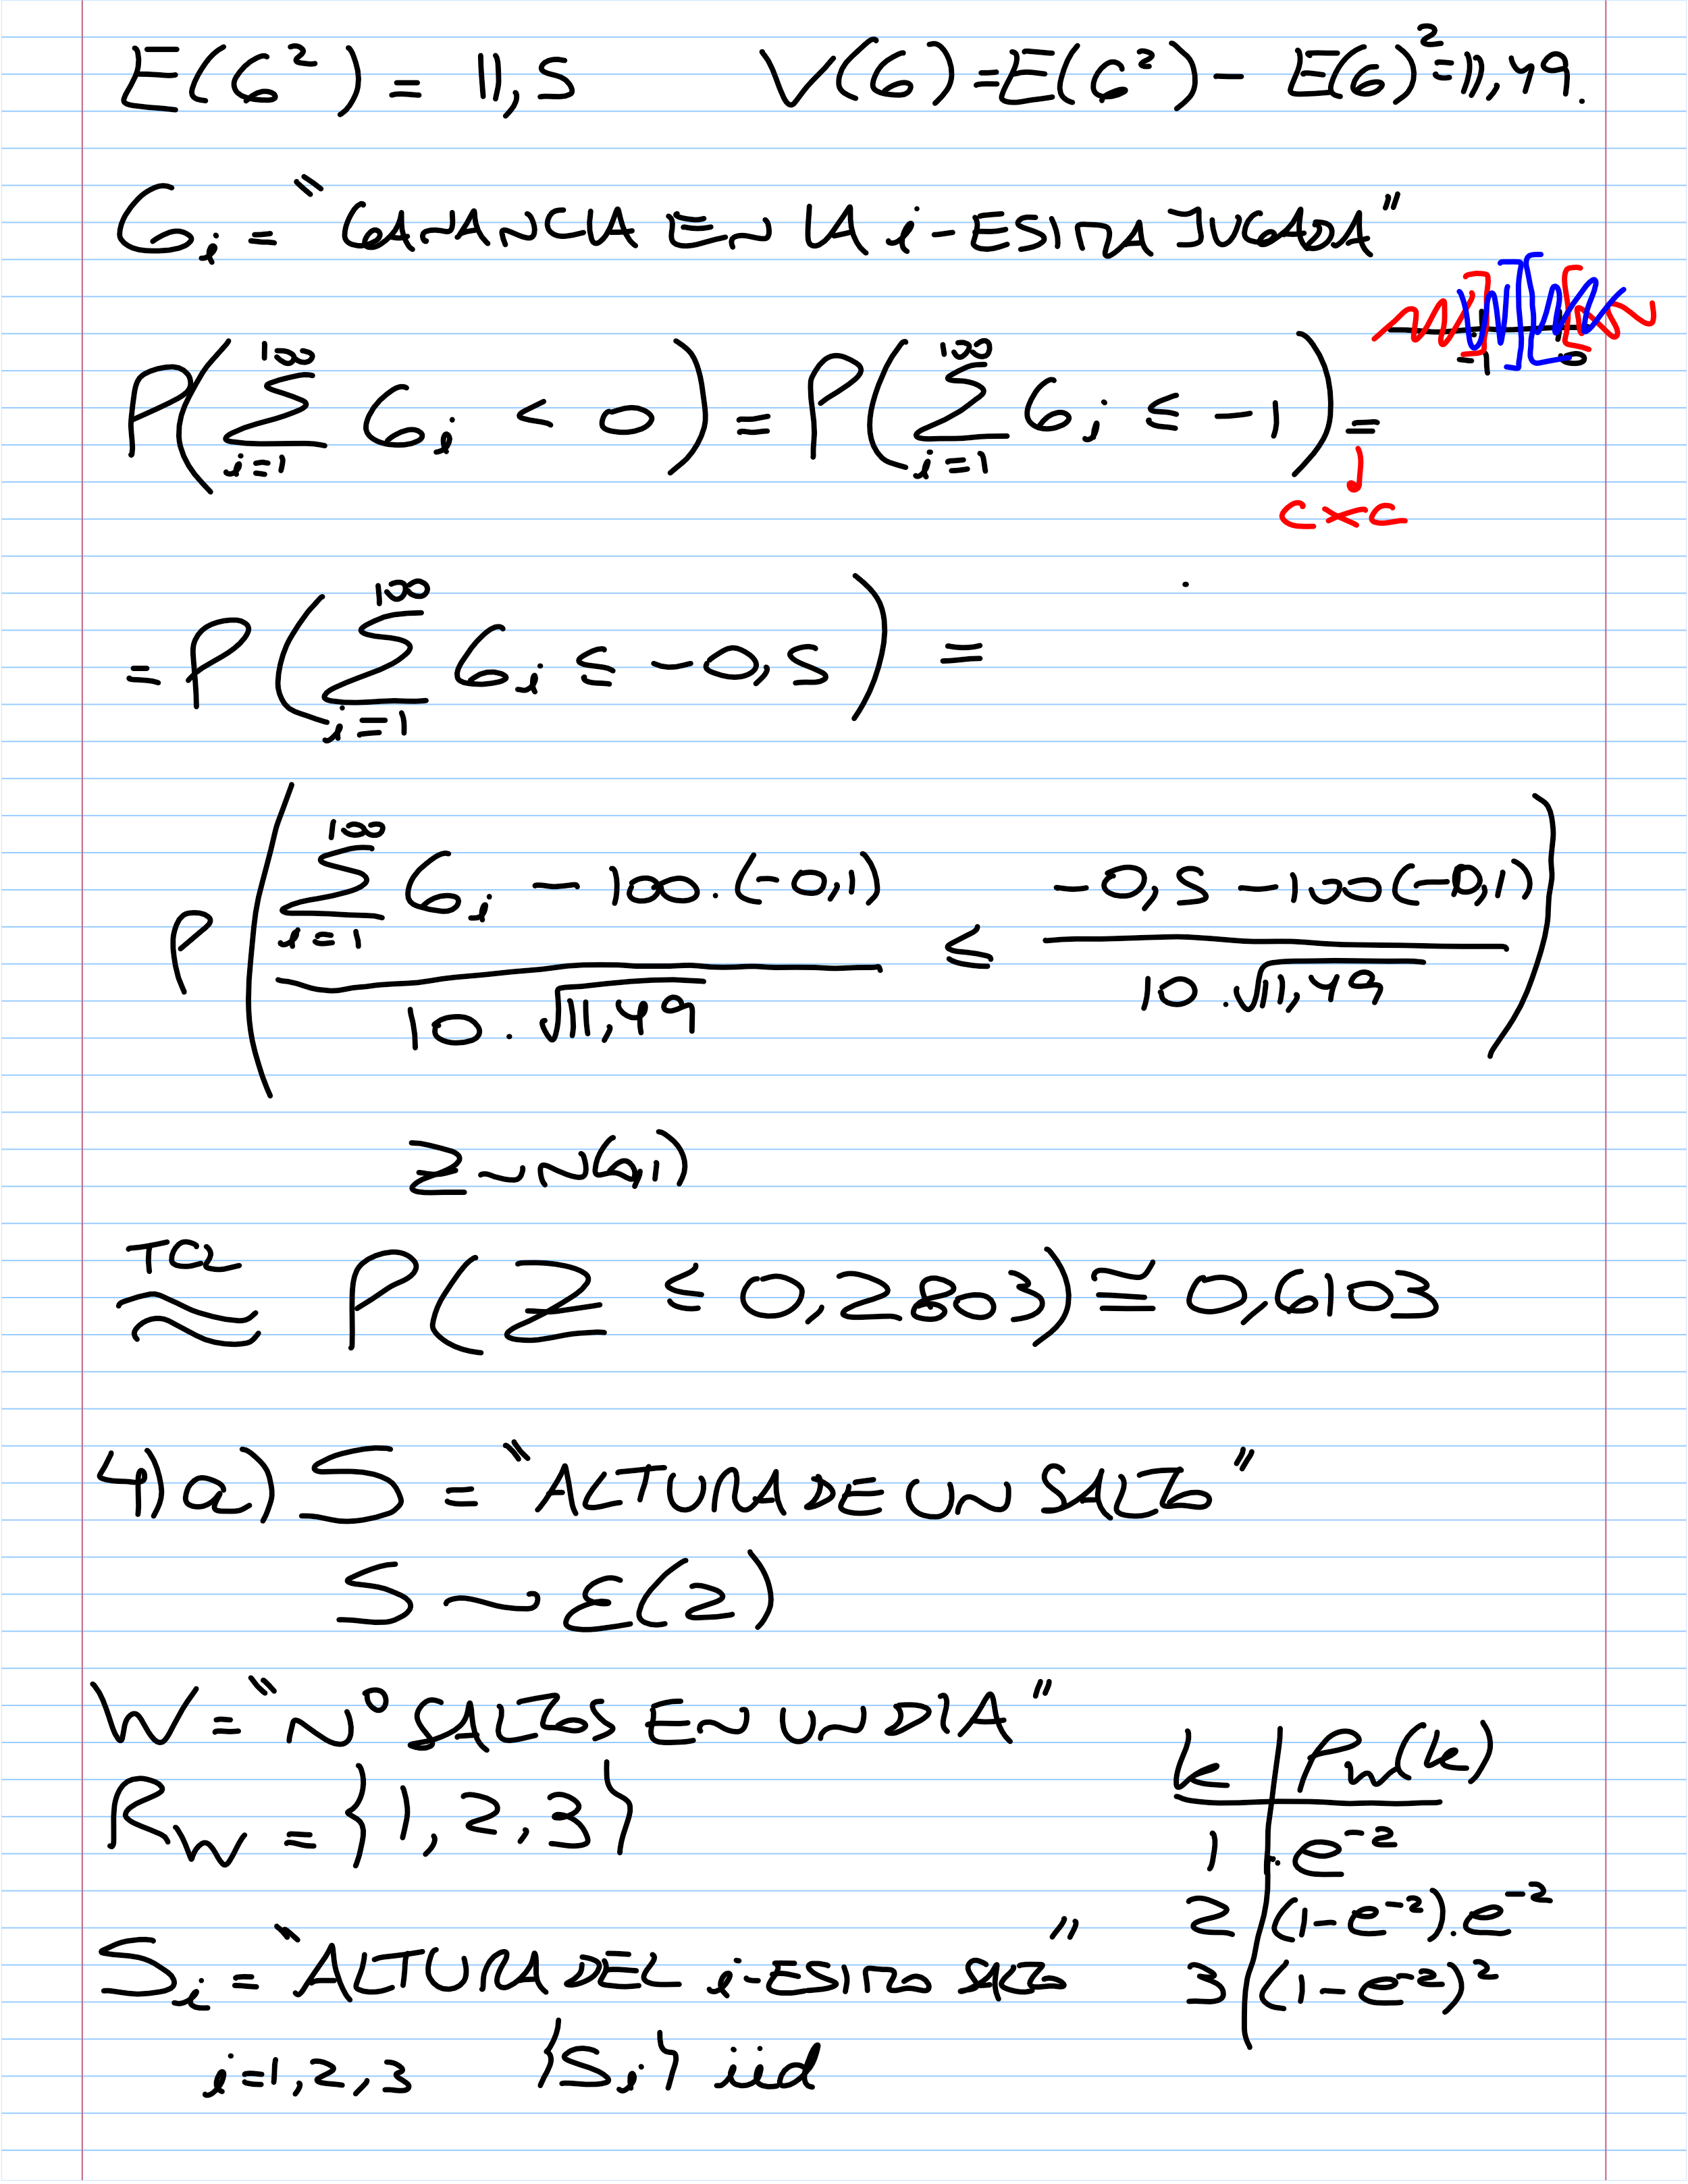 E(G²) = 11,5 V(G) = E(G²) - E(G)² = 11,49.
G_i = "GANANCIA EN LA i-ESIMA JUGADA"
-1 0
P(∑_{i=1}^{100} G_i < 0) = P(∑_{i=1}^{100} G_i ≤ -1) =
CxC
= P(∑_{i=1}^{100} G_i ≤ -0,5) =
P((∑_{i=1}^{100} G_i - 100.(-0,1)) / (10.√11,49) ≤ (-0,5 - 100(-0,1)) / (10.√11,49))
Z ~ N(0,1)
TCL ≈ P(Z ≤ 0,2803) ≅ 0,6103
4) a) S = "ALTURA DE UN SALTO"
S ~ ε(2)
W = "Nº SALTOS EN UN DIA"
R_W = {1, 2, 3}
k | P_W(k)
1 | e⁻²
2 | (1-e⁻²).e⁻²
3 | (1-e⁻²)²
S_i = "ALTURA DEL i-ESIMO SALTO"
i=1,2,3 {S_i} iid